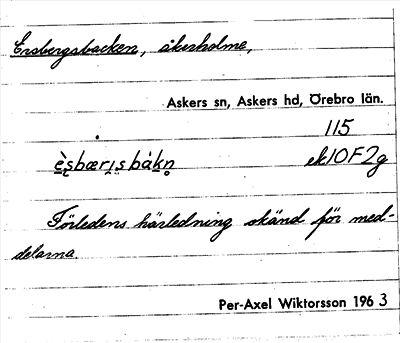 Ersbergsbacken, åkerholme,
Askers sn, Askers hd, Örebro län.
115
èsbærisbàkn
ek10F2g
Förledens härledning okänd för med-
delarna
Per-Axel Wiktorsson 196 3